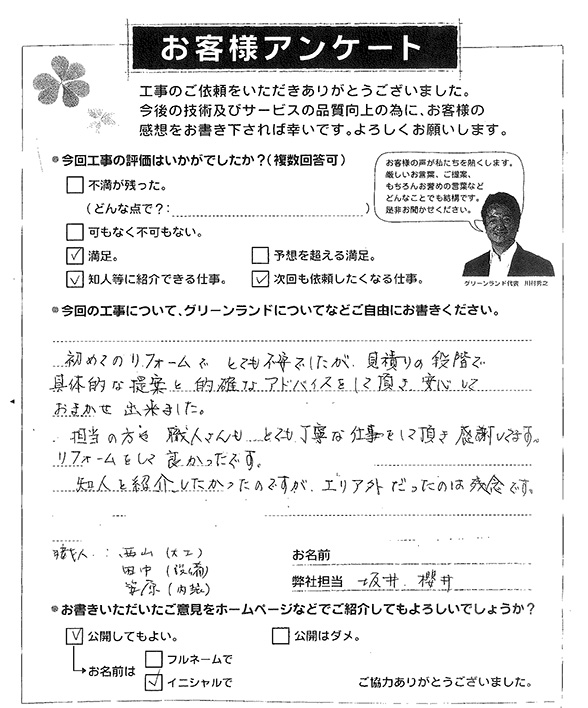 お客様アンケート
工事のご依頼をいただきありがとうございました。
今後の技術及びサービスの品質向上の為に、お客様の
感想をお書き下されば幸いです。よろしくお願いします。
今回工事の評価はいかがでしたか?(複数回答可)
不満が残った。
(どんな点で?: )
可もなく不可もない。
満足。 予想を超える満足。
知人等に紹介できる仕事。 次回も依頼したくなる仕事。
お客様の声が私たちを熱くします。
厳しいお言葉、ご提案、
もちろんお誉めの言葉など
どんなことでも結構です。
是非お聞かせください。
グリーンランド代表
今回の工事について、グリーンランドについてなどご自由にお書きください。
初めてのリフォームで とても不安でしたが、見積りの段階で
具体的な提案と的確なアドバイスをして頂き安心して
おまかせ出来ました。
担当の方も 職人さんも とても丁寧な仕事をして頂き感謝してます。
リフォームをして良かったです。
知人を紹介したかったのですが、エリア外だったのは残念です。
職人: 西山(大工)
田中(設備)
安原(内装)
お名前
弊社担当 坂井 櫻井
お書きいただいたご意見をホームページなどでご紹介してもよろしいでしょうか?
公開してもよい。 公開はダメ。
お名前は
フルネームで
イニシャルで
ご協力ありがとうございました。